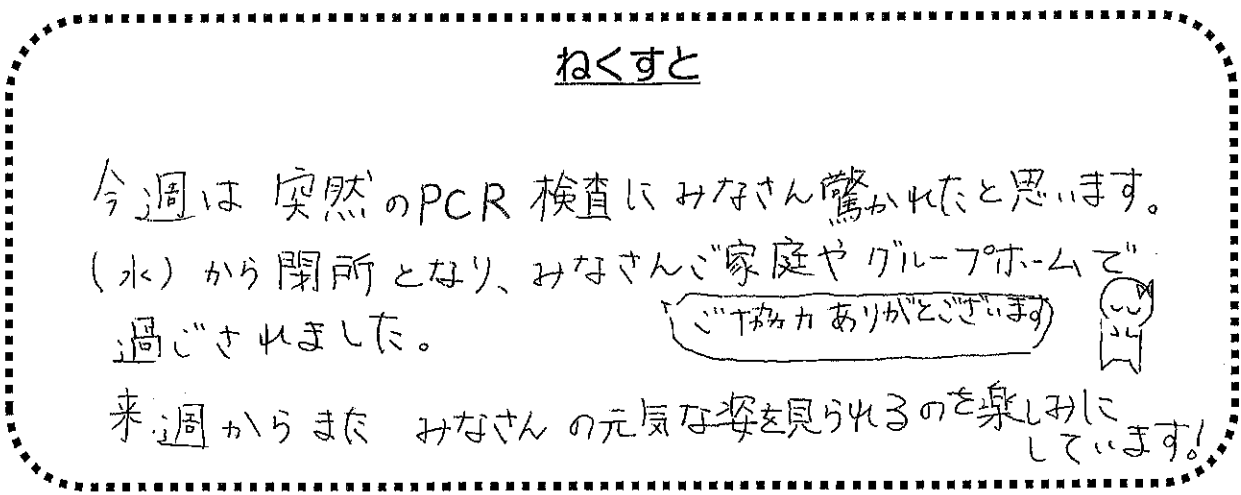 ねくすと
今週は 突然のPCR検査にみなさん驚かれたと思います。
(水)から閉所となり、みなさんご家庭やグループホームで
過ごされました。
ご協力ありがとございます
来週からまた みなさんの元気な姿を見られるのを楽しみに
しています!